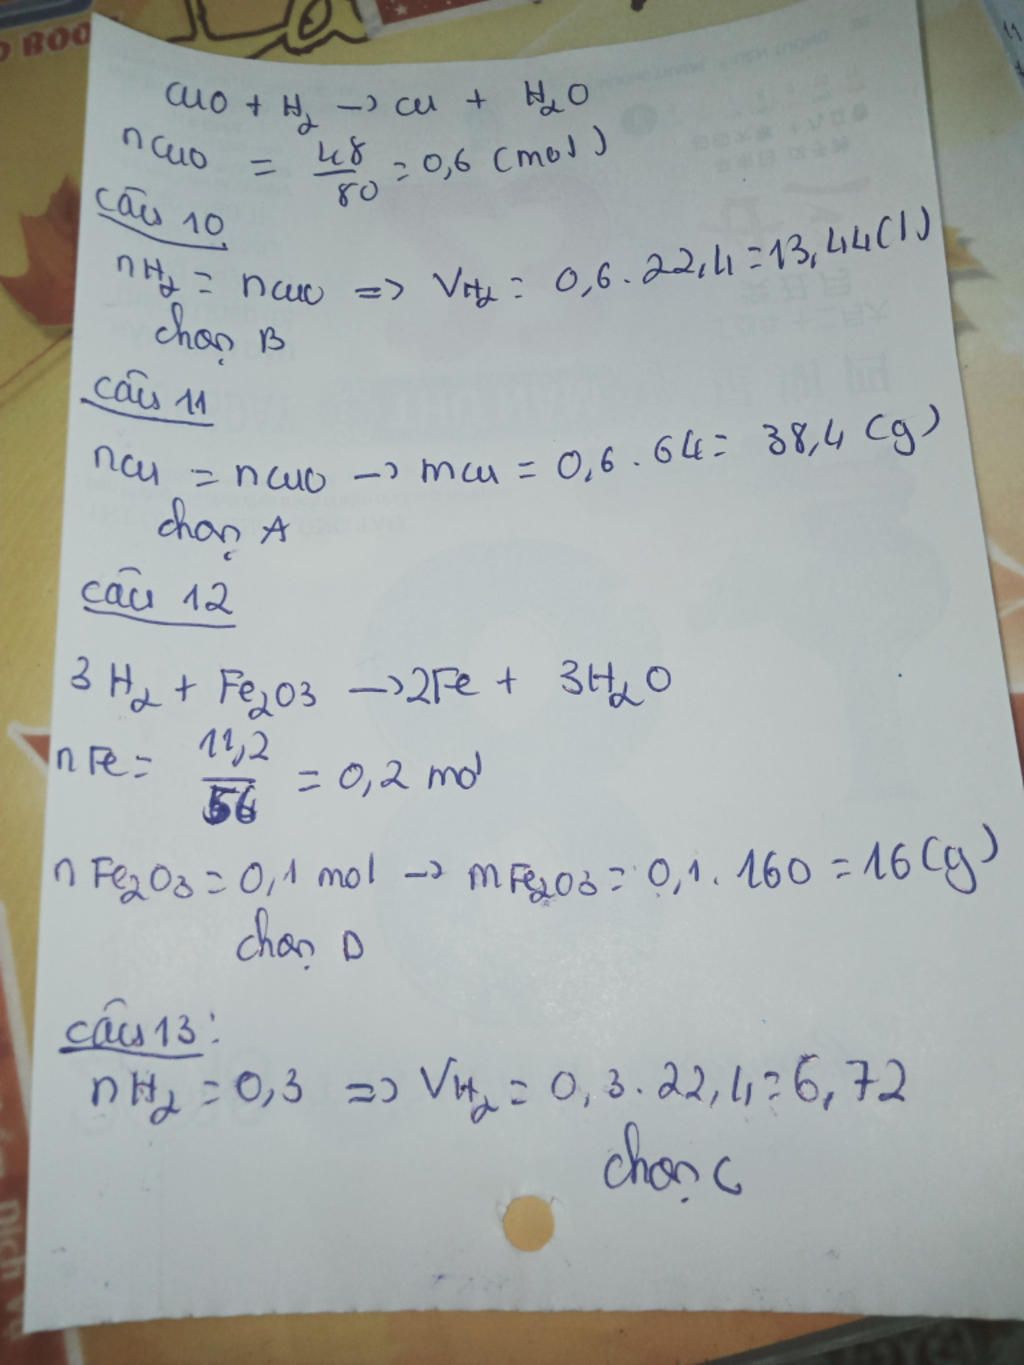 CuO + H₂ → Cu + H₂O
nCuO = 48/80 = 0,6 (mol)
Câu 10
nH₂ = nCuO => VH₂ = 0,6 . 22,4 = 13,44 (l)
chọn B
Câu 11
nCu = nCuO → mCu = 0,6 . 64 = 38,4 (g)
chọn A
Câu 12
3H₂ + Fe₂O3 → 2Fe + 3H₂O
nFe = 11,2/56 = 0,2 mol
nFe₂O3 = 0,1 mol → mFe₂O3 = 0,1 . 160 = 16 (g)
chọn D
Câu 13:
nH₂ = 0,3 => VH₂ = 0,3 . 22,4 = 6,72
chọn C